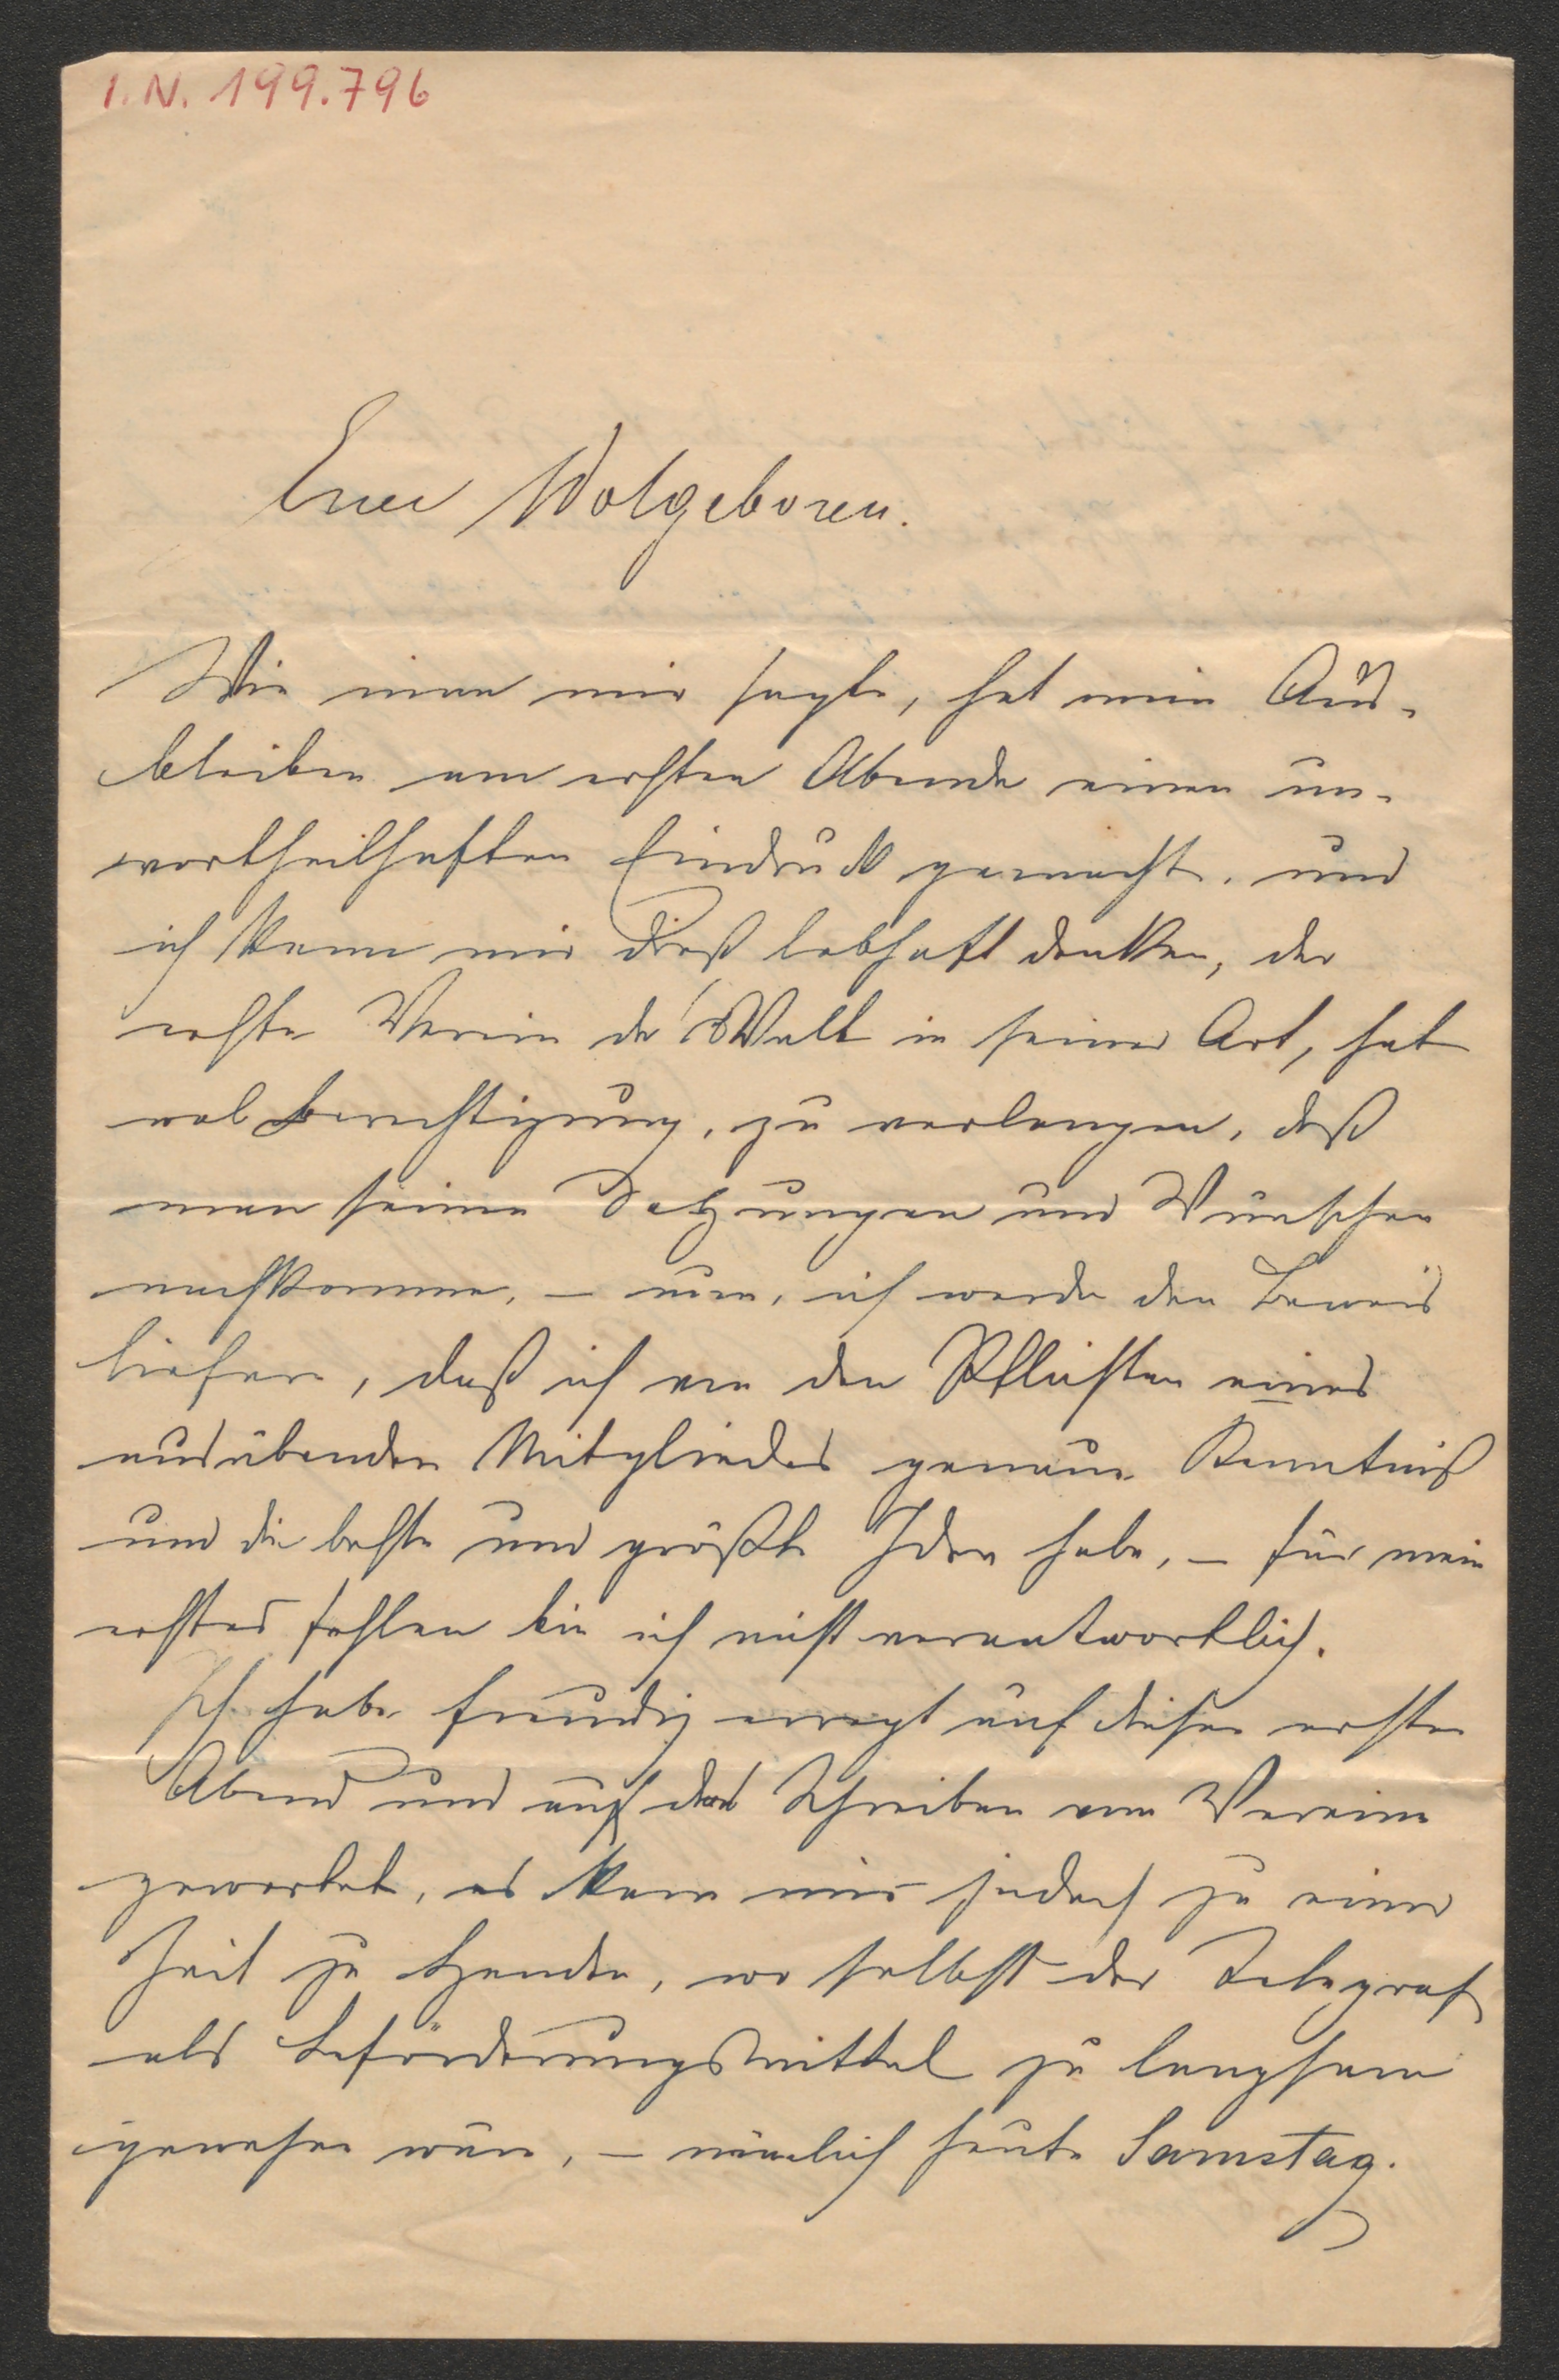 I. N. 199.796
Euer Wolgeboren.
Wie man mir sagte, hat mein Aus-
bleiben am ersten Abende einen un-
vortheilhaften Eindruck gemacht, und
ich kann mir dieß lebhaft denken, der
erste Verein der Welt in seiner Art, hat
wol Berechtigung, zu verlangen, daß
man seinen Satzungen und Wünschen
nachkomme, – nun, ich werde den Beweis
liefern, daß ich von den Pflichten eines
ausübenden Mitgliedes genaue Kenntniß
und die beste und größte Idee habe, – für mein
erstes Fehlen bin ich nicht verantwortlich.
Ich habe freudig erregt auf diesen ersten
Abend und auf das Schreiben vom Vereine
gewartet, es kam mir jedoch zu einer
Zeit zu Handen, wo selbst der Telegraf
als Beförderungsmittel zu langsam
gewesen wäre, – nämlich heute Samstag.